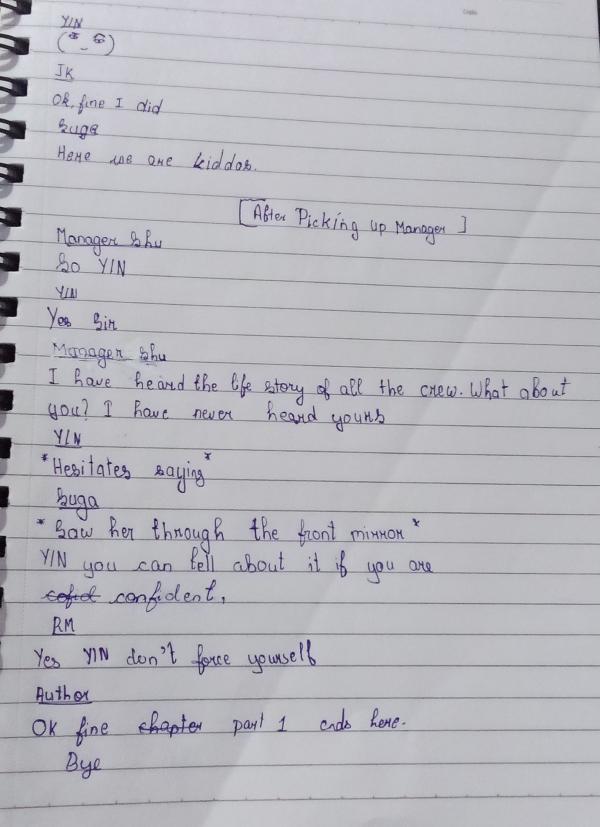 Y/N
JK
Ok, fine I did
Suga
Here we are kiddos.
[After Picking up Manager]
Manager Shu
So Y/N
Y/N
Yes Sir
Manager Shu
I have heard the life story of all the crew. What about
you? I have never heard yours
Y/N
*Hesitates saying*
Suga
*Saw her through the front mirror*
Y/N you can tell about it if you are
confident,
RM
Yes Y/N don't force yourself
Author
OK fine chapter part 1 ends here.
Bye